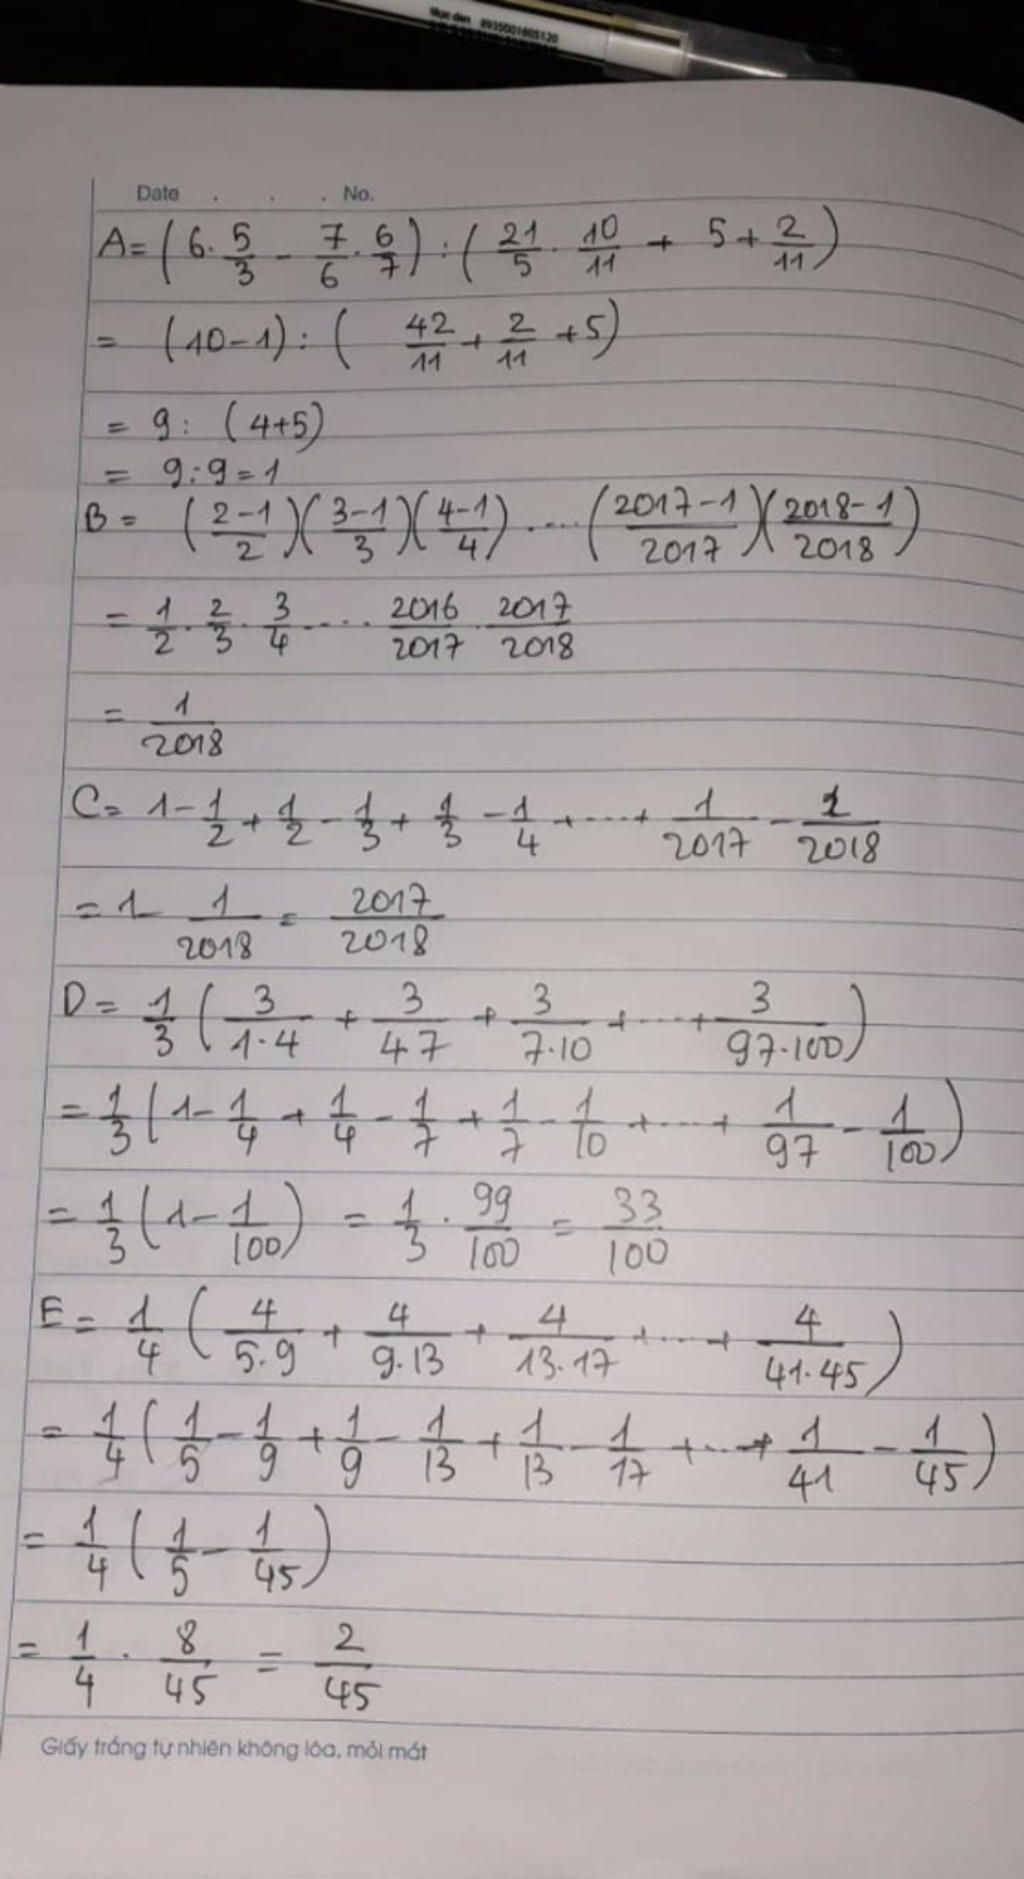 8935001805120
Date . . . No.
A= (6 · 5/3 - 7/6 · 6/7) : (21/5 · 10/11 + 5 + 2/11)
= (10-1) : ( 42/11 + 2/11 + 5)
= 9 : (4+5)
= 9:9=1
B = ((2-1)/2)((3-1)/3)((4-1)/4) .... ((2017-1)/2017)((2018-1)/2018)
= 1/2 · 2/3 · 3/4 .... 2016/2017 · 2017/2018
= 1/2018
C= 1 - 1/2 + 1/2 - 1/3 + 1/3 - 1/4 + ... + 1/2017 - 1/2018
= 1 - 1/2018 = 2017/2018
D = 1/3 (3/1·4 + 3/4·7 + 3/7·10 + ... + 3/97·100)
= 1/3 (1 - 1/4 + 1/4 - 1/7 + 1/7 - 1/10 + ... + 1/97 - 1/100)
= 1/3 (1 - 1/100) = 1/3 · 99/100 = 33/100
E = 1/4 (4/5·9 + 4/9·13 + 4/13·17 + ... + 4/41·45)
= 1/4 (1/5 - 1/9 + 1/9 - 1/13 + 1/13 - 1/17 + ... + 1/41 - 1/45)
= 1/4 (1/5 - 1/45)
= 1/4 · 8/45 = 2/45
Giấy trắng tự nhiên không lóa, mỏi mắt